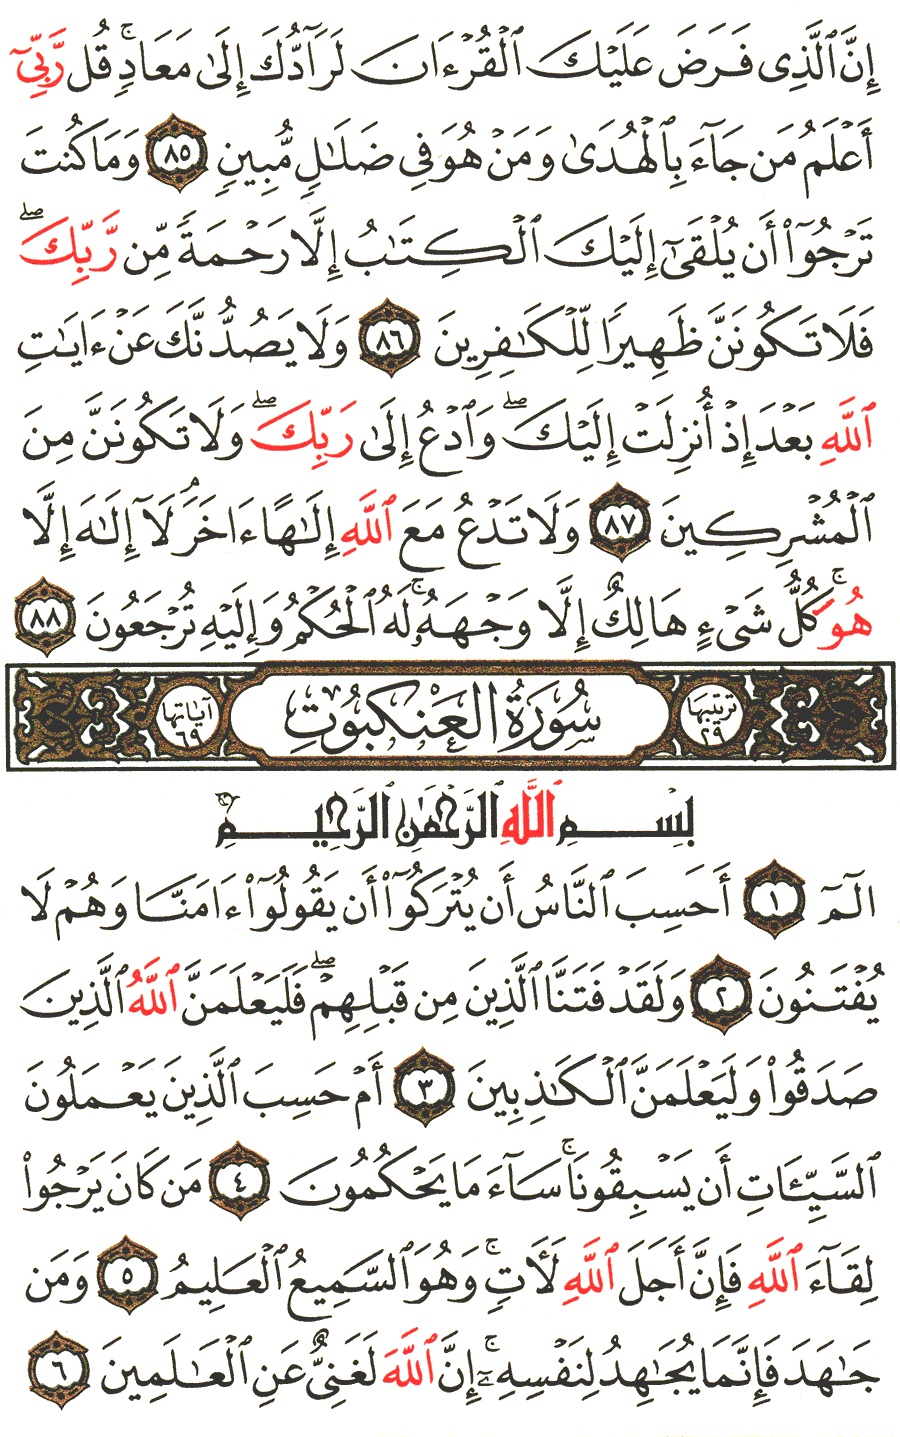 إِنَّ ٱلَّذِى فَرَضَ عَلَيْكَ ٱلْقُرْءَانَ لَرَآدُّكَ إِلَىٰ مَعَادٍۚ قُل رَّبِّىٓ
أَعْلَمُ مَن جَآءَ بِٱلْهُدَىٰ وَمَنْ هُوَ فِى ضَلَـٰلٍ مُّبِينٍ ٨٥ وَمَا كُنتَ
تَرْجُوٓا۟ أَن يُلْقَىٰٓ إِلَيْكَ ٱلْكِتَـٰبُ إِلَّا رَحْمَةً مِّن رَّبِّكَۖ
فَلَا تَكُونَنَّ ظَهِيرًا لِّلْكَـٰفِرِينَ ٨٦ وَلَا يَصُدُّنَّكَ عَنْ ءَايَـٰتِ
ٱللَّهِ بَعْدَ إِذْ أُنزِلَتْ إِلَيْكَۖ وَٱدْعُ إِلَىٰ رَبِّكَۖ وَلَا تَكُونَنَّ مِنَ
ٱلْمُشْرِكِينَ ٨٧ وَلَا تَدْعُ مَعَ ٱللَّهِ إِلَـٰهًا ءَاخَرَۘ لَآ إِلَـٰهَ إِلَّا
هُوَۚ كُلُّ شَىْءٍ هَالِكٌ إِلَّا وَجْهَهُۥۚ لَهُ ٱلْحُكْمُ وَإِلَيْهِ تُرْجَعُونَ ٨٨
ترتيبها ٢٩ سُورَةُ العَنْكَبُوتِ آياتها ٦٩
بِسْمِ ٱللَّهِ ٱلرَّحْمَـٰنِ ٱلرَّحِيمِ
الٓمٓ ١ أَحَسِبَ ٱلنَّاسُ أَن يُتْرَكُوٓا۟ أَن يَقُولُوٓا۟ ءَامَنَّا وَهُمْ لَا
يُفْتَنُونَ ٢ وَلَقَدْ فَتَنَّا ٱلَّذِينَ مِن قَبْلِهِمْۖ فَلَيَعْلَمَنَّ ٱللَّهُ ٱلَّذِينَ
صَدَقُوا۟ وَلَيَعْلَمَنَّ ٱلْكَـٰذِبِينَ ٣ أَمْ حَسِبَ ٱلَّذِينَ يَعْمَلُونَ
ٱلسَّيِّـَٔاتِ أَن يَسْبِقُونَاۚ سَآءَ مَا يَحْكُمُونَ ٤ مَن كَانَ يَرْجُوا۟
لِقَآءَ ٱللَّهِ فَإِنَّ أَجَلَ ٱللَّهِ لَـَٔاتٍۚ وَهُوَ ٱلسَّمِيعُ ٱلْعَلِيمُ ٥ وَمَن
جَـٰهَدَ فَإِنَّمَا يُجَـٰهِدُ لِنَفْسِهِۦٓۚ إِنَّ ٱللَّهَ لَغَنِىٌّ عَنِ ٱلْعَـٰلَمِينَ ٦